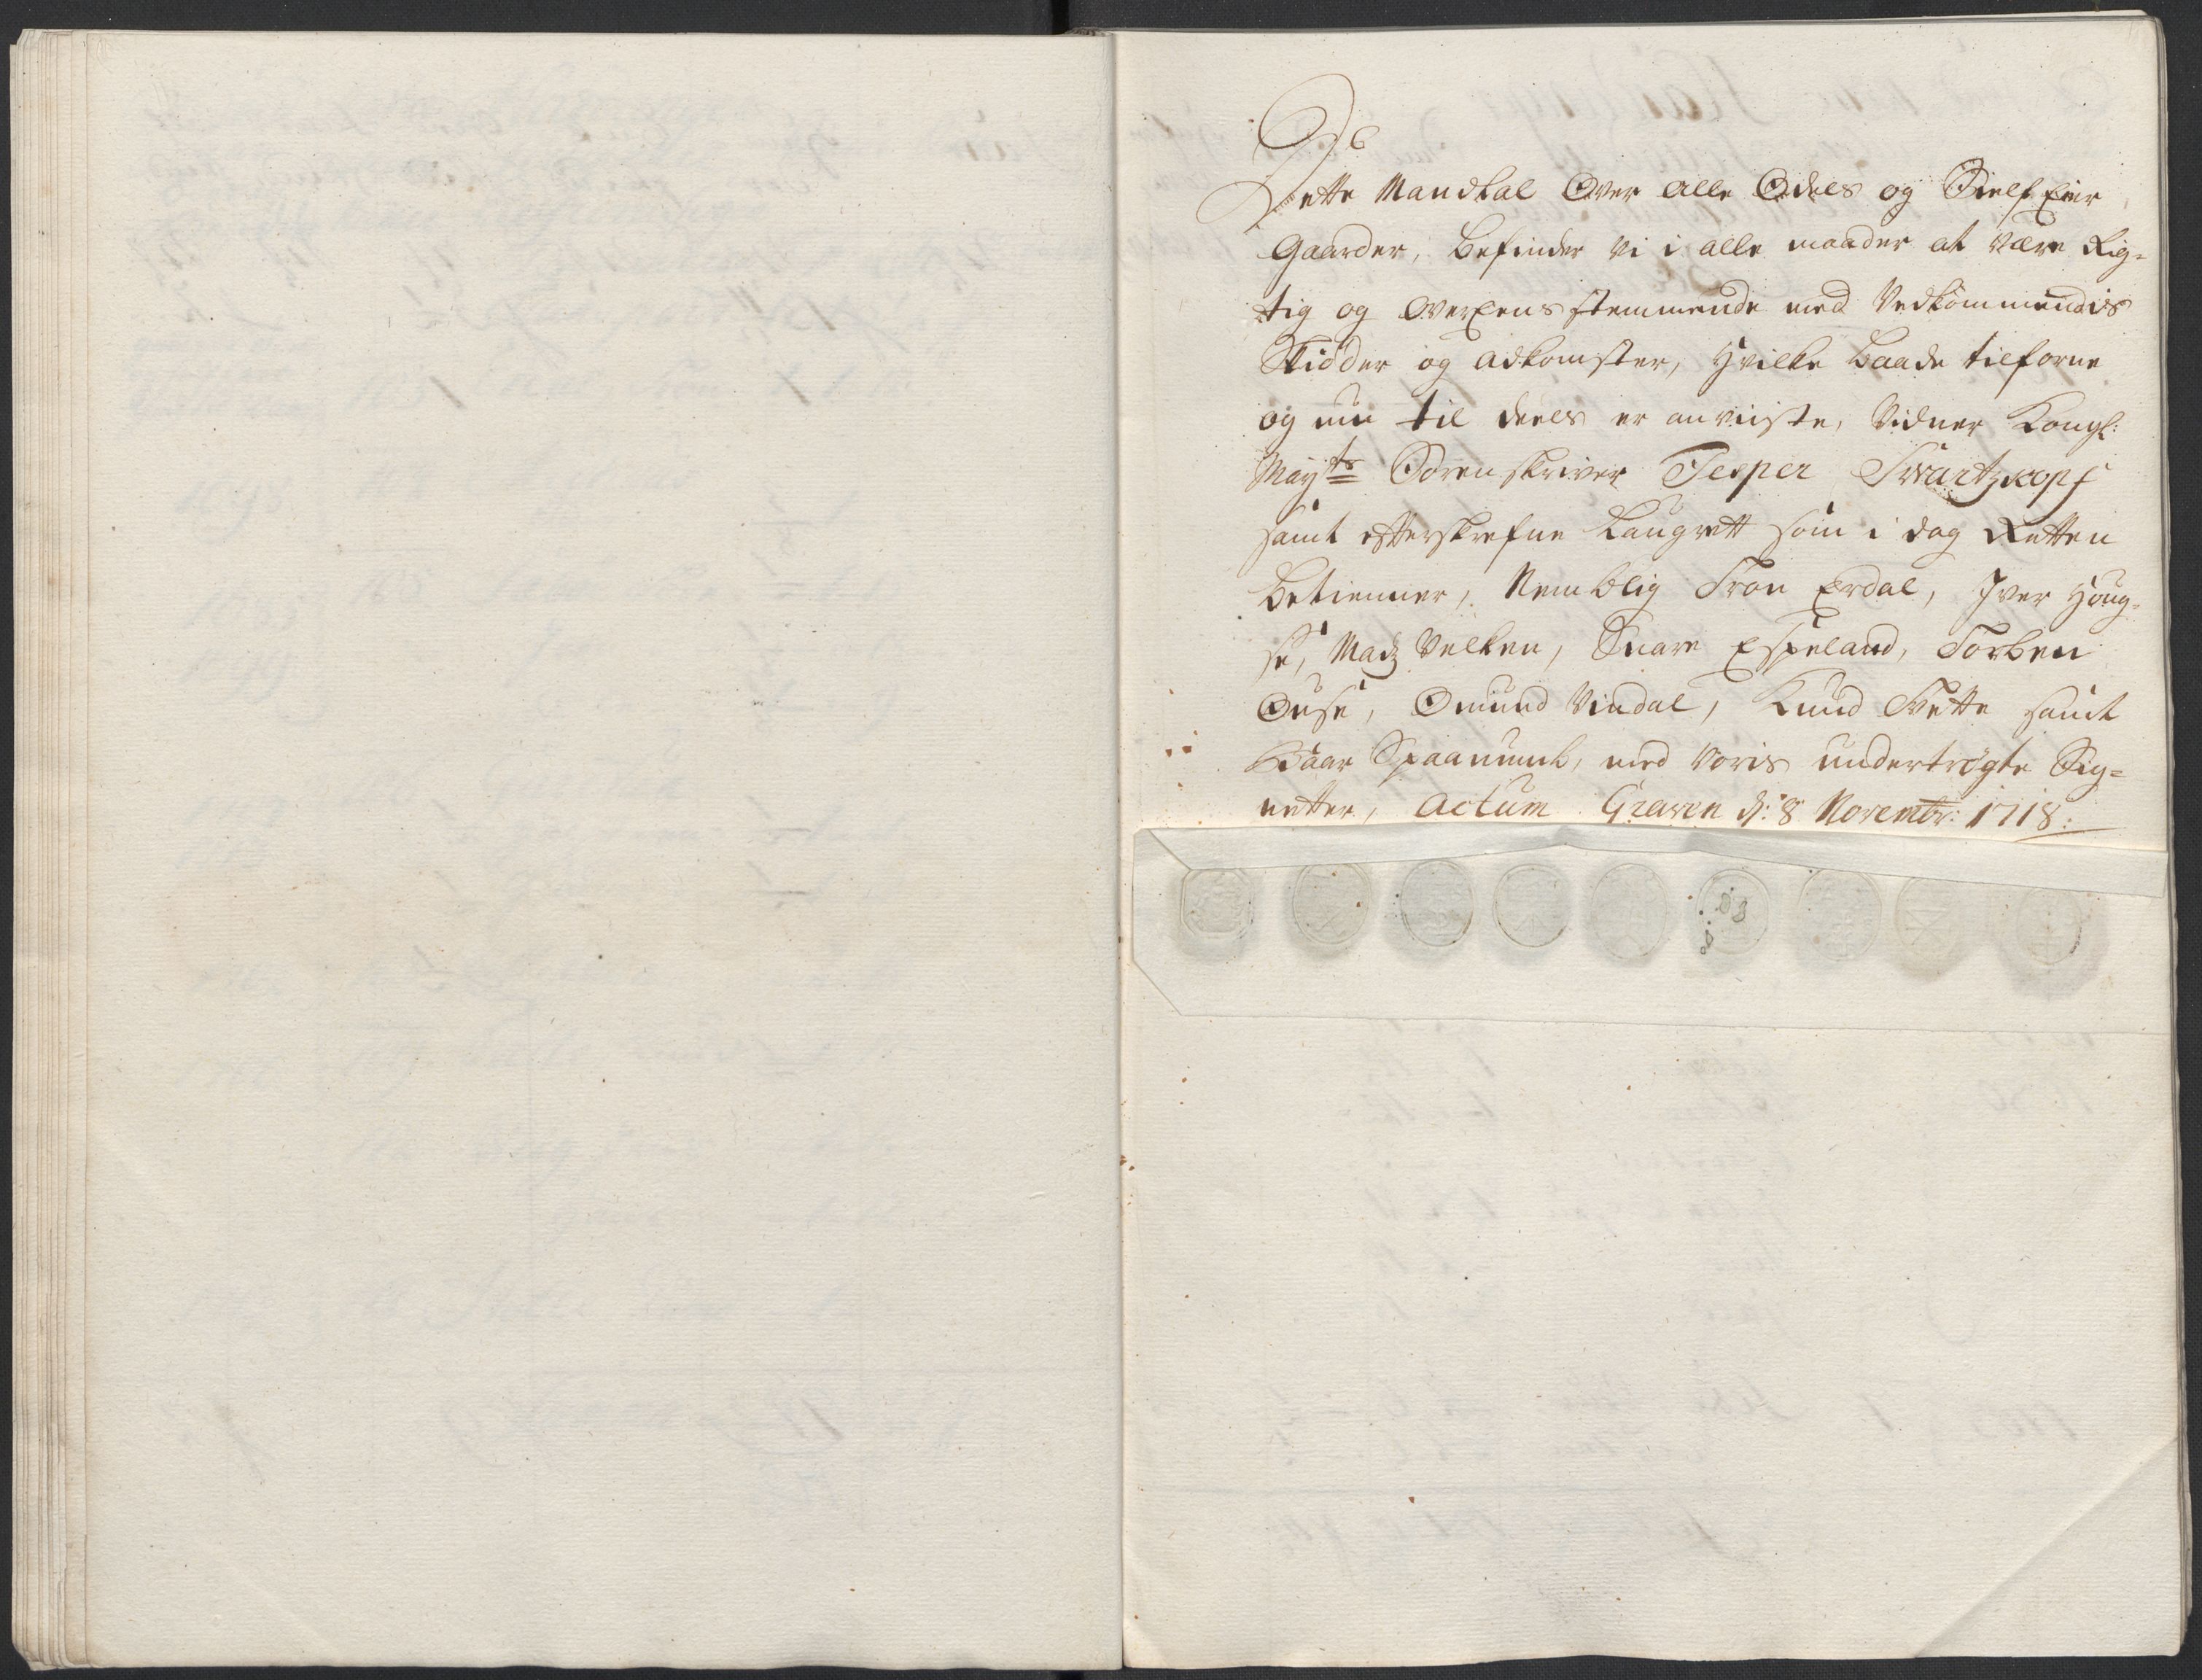 Dette Mandtal Over alle Odels og Sielf Eier
Gaarder, befinder vi i alle maader at være Rig-
tig og overeens stemmende med Vedkommendis
Skiøder og adkomster, hvilke baade tilforne
og nu til deels er anviiste, Vidner Kongl:
Mayts Sorenskriver Jesper Swartzkopf
samt effterskrefne Laugrett som i dag Retten
betienner, Nemblig Tron Erdal, Iver Houg-
se, Madz Velken, Snare Espeland, Torben
Ouse, Omund Vindal, Knud Tvette samt
Baar Spaanumb, med voris undertrögte Sig-
netter, Actum Graven d: 8 Novembr: 1718: